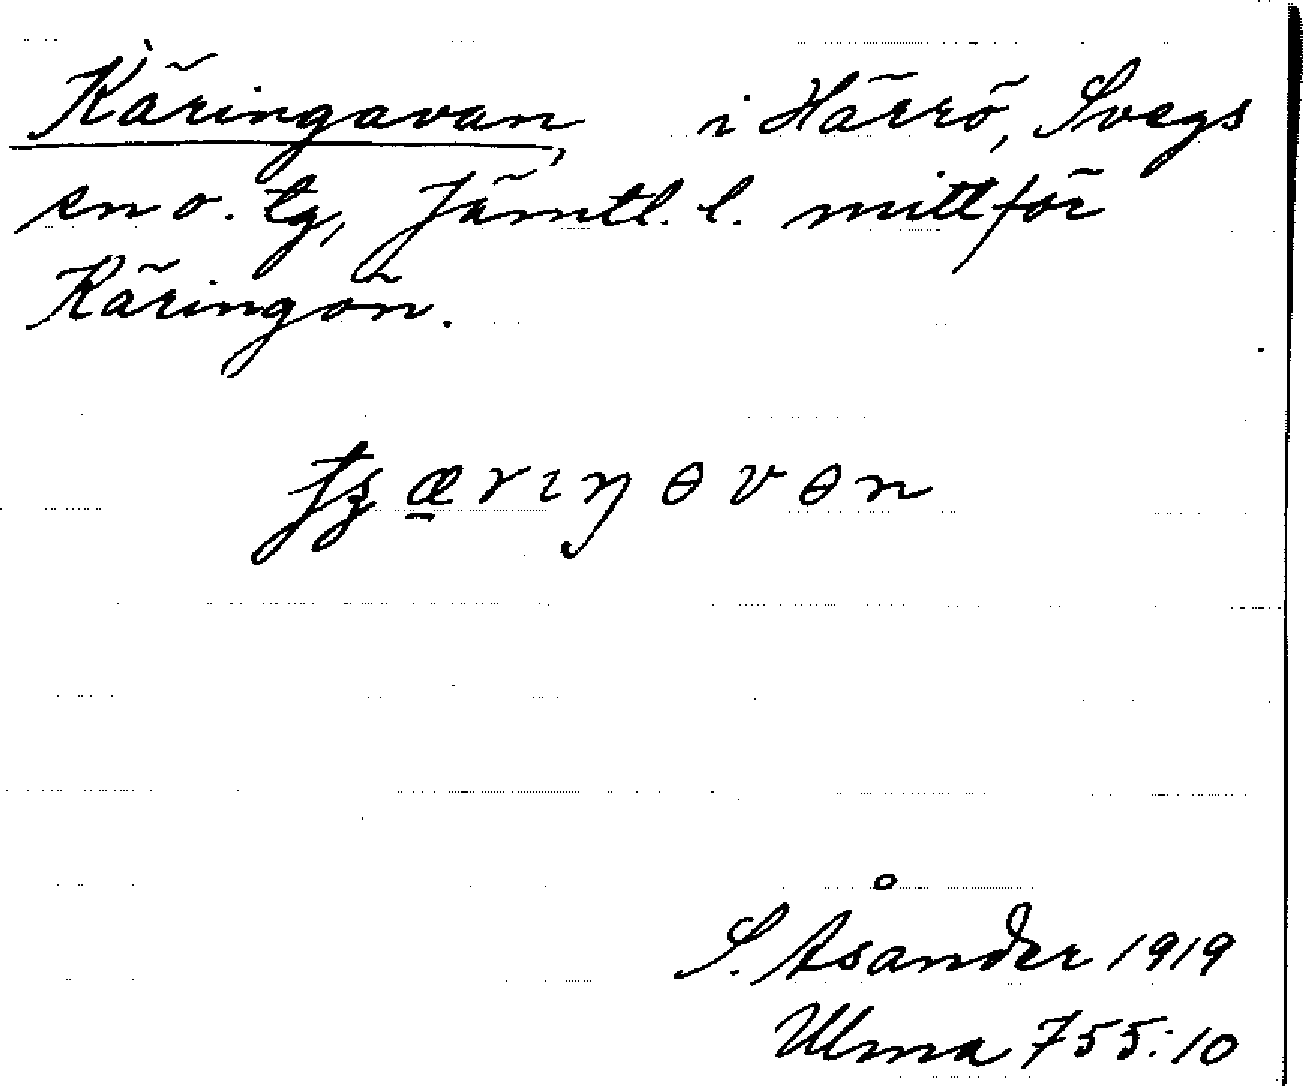 Käringavan, i Härrö, Svegs
sn o. tg, Jämtl. l. mitt för
Käringön.
S. Åsander 1919
Ulma 755:10